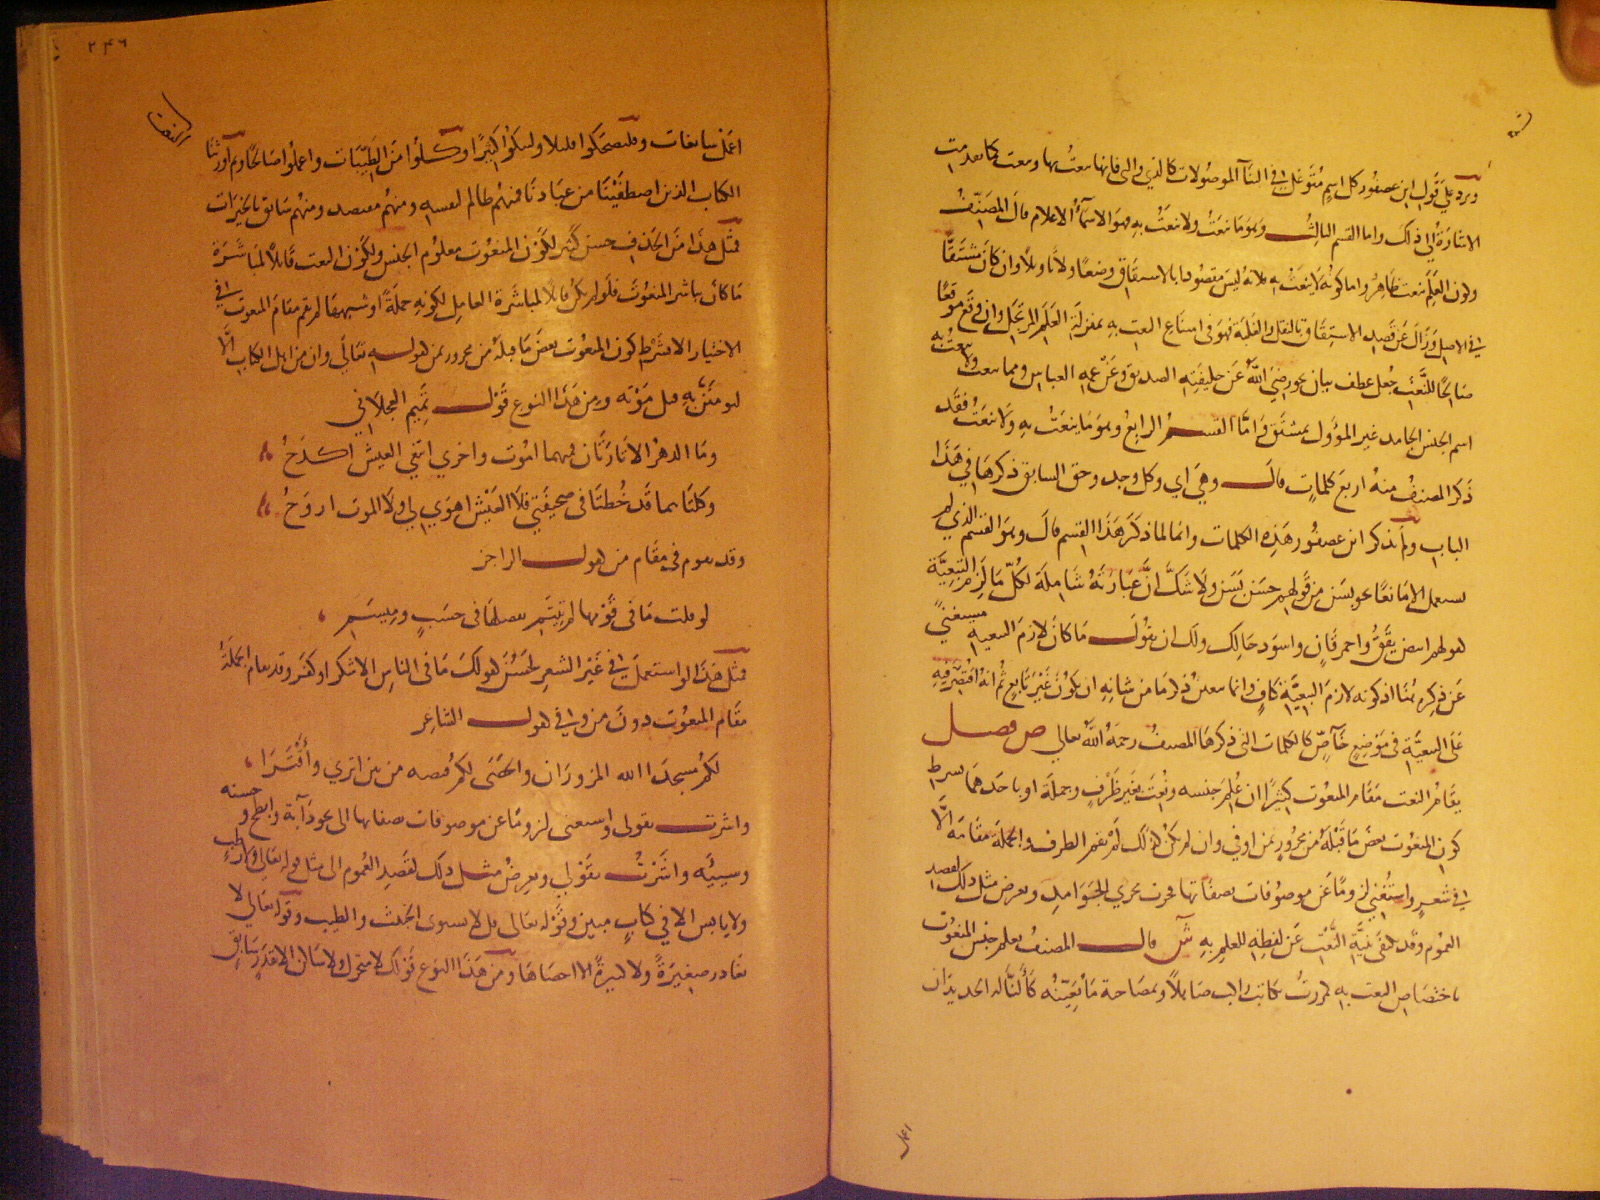 ويرد على قول ابن عصفور كل اسم متوغل في البنا الموصولات كالذي والتي فانها تنعت بها وتنعت كما تقدمت
الاشارة الى ذلك واما القسم الثالث وهو ما ينعت ولا ينعت به فهو الاسماء الاعلام قال المصنف
وكون العلم ينعت ظاهر واما كونه لا ينعت به فلانه ليس مقصودا بالاشتقاق وضعا ولا تاويلا وان كان مشتقا
في الاصل وزال عن قصد الاشتقاق بالنقل والغلبة فهو في امتناع النعت به بمنزلة العلم المرتجل وان وقع موقعا
صالحا للنعت جعل عطف بيان نحو رضي الله عن خليفته الصديق وعن عمه العباس ومما ينعت ولا ينعت به
اسم الجنس الجامد غير المؤول بمشتق واما القسم الرابع وهو ما ينعت به ولا ينعت فقد
ذكر المصنف منه اربع كلمات قال وهي اي وكل وجد وحق السابق ذكرها في هذا
الباب ولم يذكر ابن عصفور هذه الكلمات وانما لما ذكر هذا القسم قال وهو القسم الذي لم
يستعمل الا تابعا نحو بسن من قولهم حسن بسن ولا شك ان عبارته شاملة لكل ما لزم التبعية
كقولهم ابيض يقق واحمر قان واسود حالك ولك ان تقول ما كان لازم التبعية مستغني
عن ذكره هنا اذ كونه لازم التبعية كاف وانما يتعين ذكر ما من شانه ان يكون غير تابع ثم انه اقتصر فيه
على التبعية في موضع خاص كالكلمات التي ذكرها المصنف رحمه الله تعالى ص فصل
يقام النعت مقام المنعوت كثيرا ان علم جنسه ونعت بغير ظرف وجملة او باحدهما بشرط
كون المنعوت بعض ما قبله من مجرور بمن او في وان لم يكن كذلك لم يقم الظرف والجملة مقامه الا
في شعر واستغني لزوما عن موصوفات بصفاتها فجرت مجرى الجوامد ويعرض مثل ذلك لقصد
العموم وقد يكتفى بنية النعت عن لفظه للعلم به ش قال المصنف يعلم جنس المنعوت
باختصاص النعت به كمررت بكاتب راكب صاهلا وبمصاحبة ما يعينه كالنا له الحديد ان
اعمل
٢٤٦
النعت
اعمل سابغات وفليضحكوا قليلا وليبكوا كثيرا وكلوا من الطيبات واعملوا صالحا وثم اورثنا
الكتاب الذين اصطفينا من عبادنا فمنهم ظالم لنفسه ومنهم مقتصد ومنهم سابق بالخيرات
فمثل هذا من الحذف حسن كثير لكون المنعوت معلوم الجنس ولكون النعت قابلا لمباشرة
ما كان يباشر المنعوت فلو لم يكن قابلا لمباشرة العامل لكونه جملة او شبيهها لم يقم مقام المنعوت في
الاختيار الا بشرط كون المنعوت بعض ما قبله من مجرور بمن كقوله تعالى وان من اهل الكتاب الا
ليومنن به قبل موته ومن هذا النوع قول تميم العجلاني
وما الدهر الا تارتان فمنهما اموت واخرى ابتغي العيش اكدح
وكلتاهما قد خط لي في صحيفتي فلا العيش اهوى لي ولا الموت اروح
وقد يقوم في مقام من كقول الراجز
لو قلت ما في قومها لم تيثم يفضلها في حسب وميسم
فمثل هذا لو استعمل في غير الشعر لحسن كقولك ما في الناس الا شكر او كفر وقد تقام الجملة
مقام المنعوت دون من وفي كقول الشاعر
لكم مسجدا الله المزوران والحصى لكم قبصه من بين اثرى واقترا
واشرت بقولي واستغنى لزوما عن موصوفات بصفاتها الى نحو دابة وابطح وحسنه
وسيئه واشرت بقولي ويعرض مثل ذلك لقصد العموم الى مثل قوله تعالى ولا رطب
ولا يابس الا في كتاب مبين وقوله تعالى قل لا يستوى الخبيث والطيب وقوله تعالى لا
يغادر صغيرة ولا كبيرة الا احصاها ومن هذا النوع قولك لا متحرك ولا ساكن الا بقدر سابق